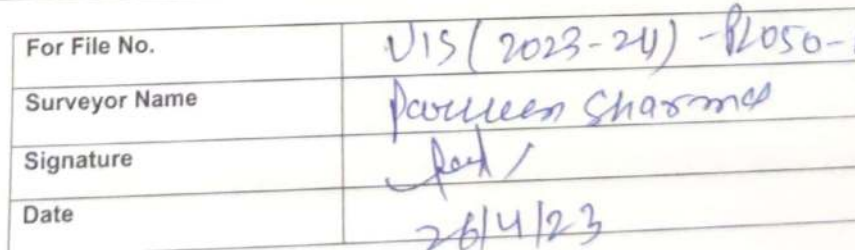 For File No. VIS(2023-24)-PL050-
Surveyor Name Parveen Sharma
Signature
Date 26/4/23